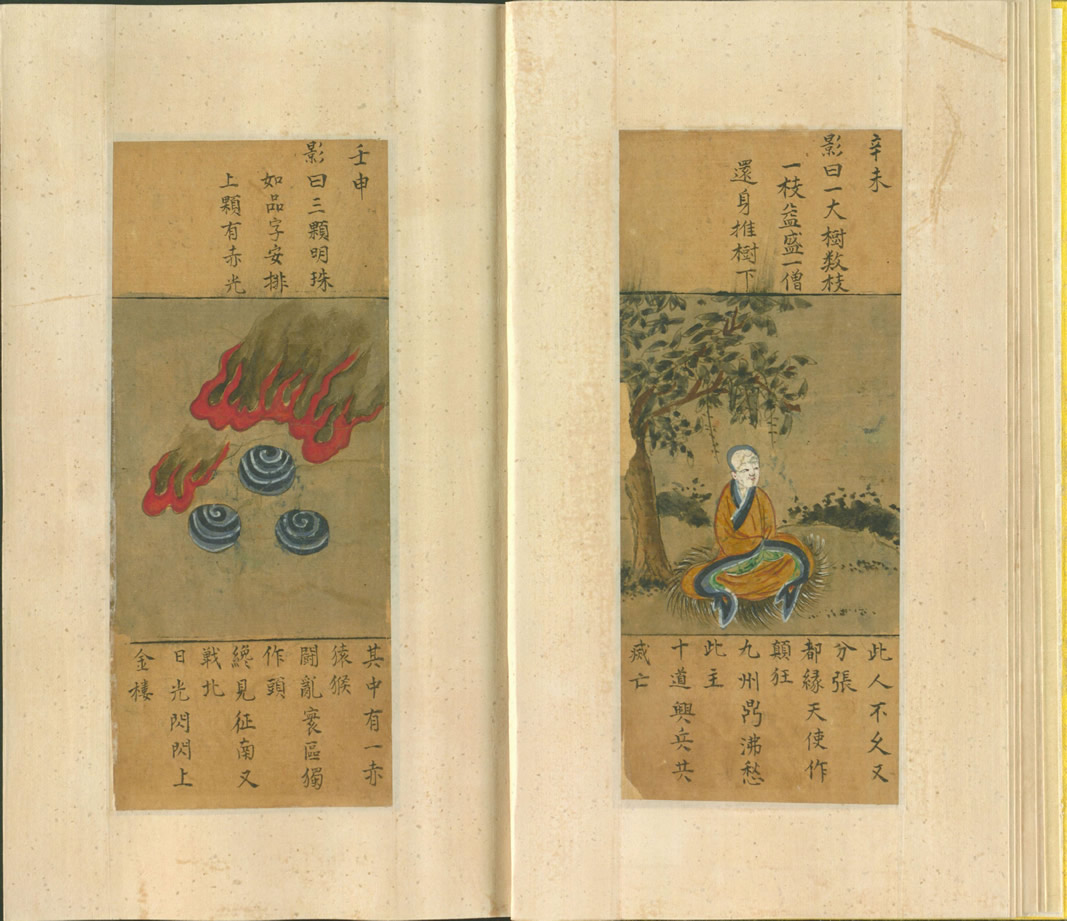 辛未
影曰一大樹数枝
一枝益盛一僧
還身推樹下
此人不久又
分張
都緣天使作
顛狂
九州鼎沸愁
此主
十道興兵共
滅亡
壬申
影曰三顆明珠
如品字安排
上顆有赤光
其中有一赤
猿猴
鬧亂寰區獨
作頭
纔見征南又
戦北
日光閃閃上
金樓